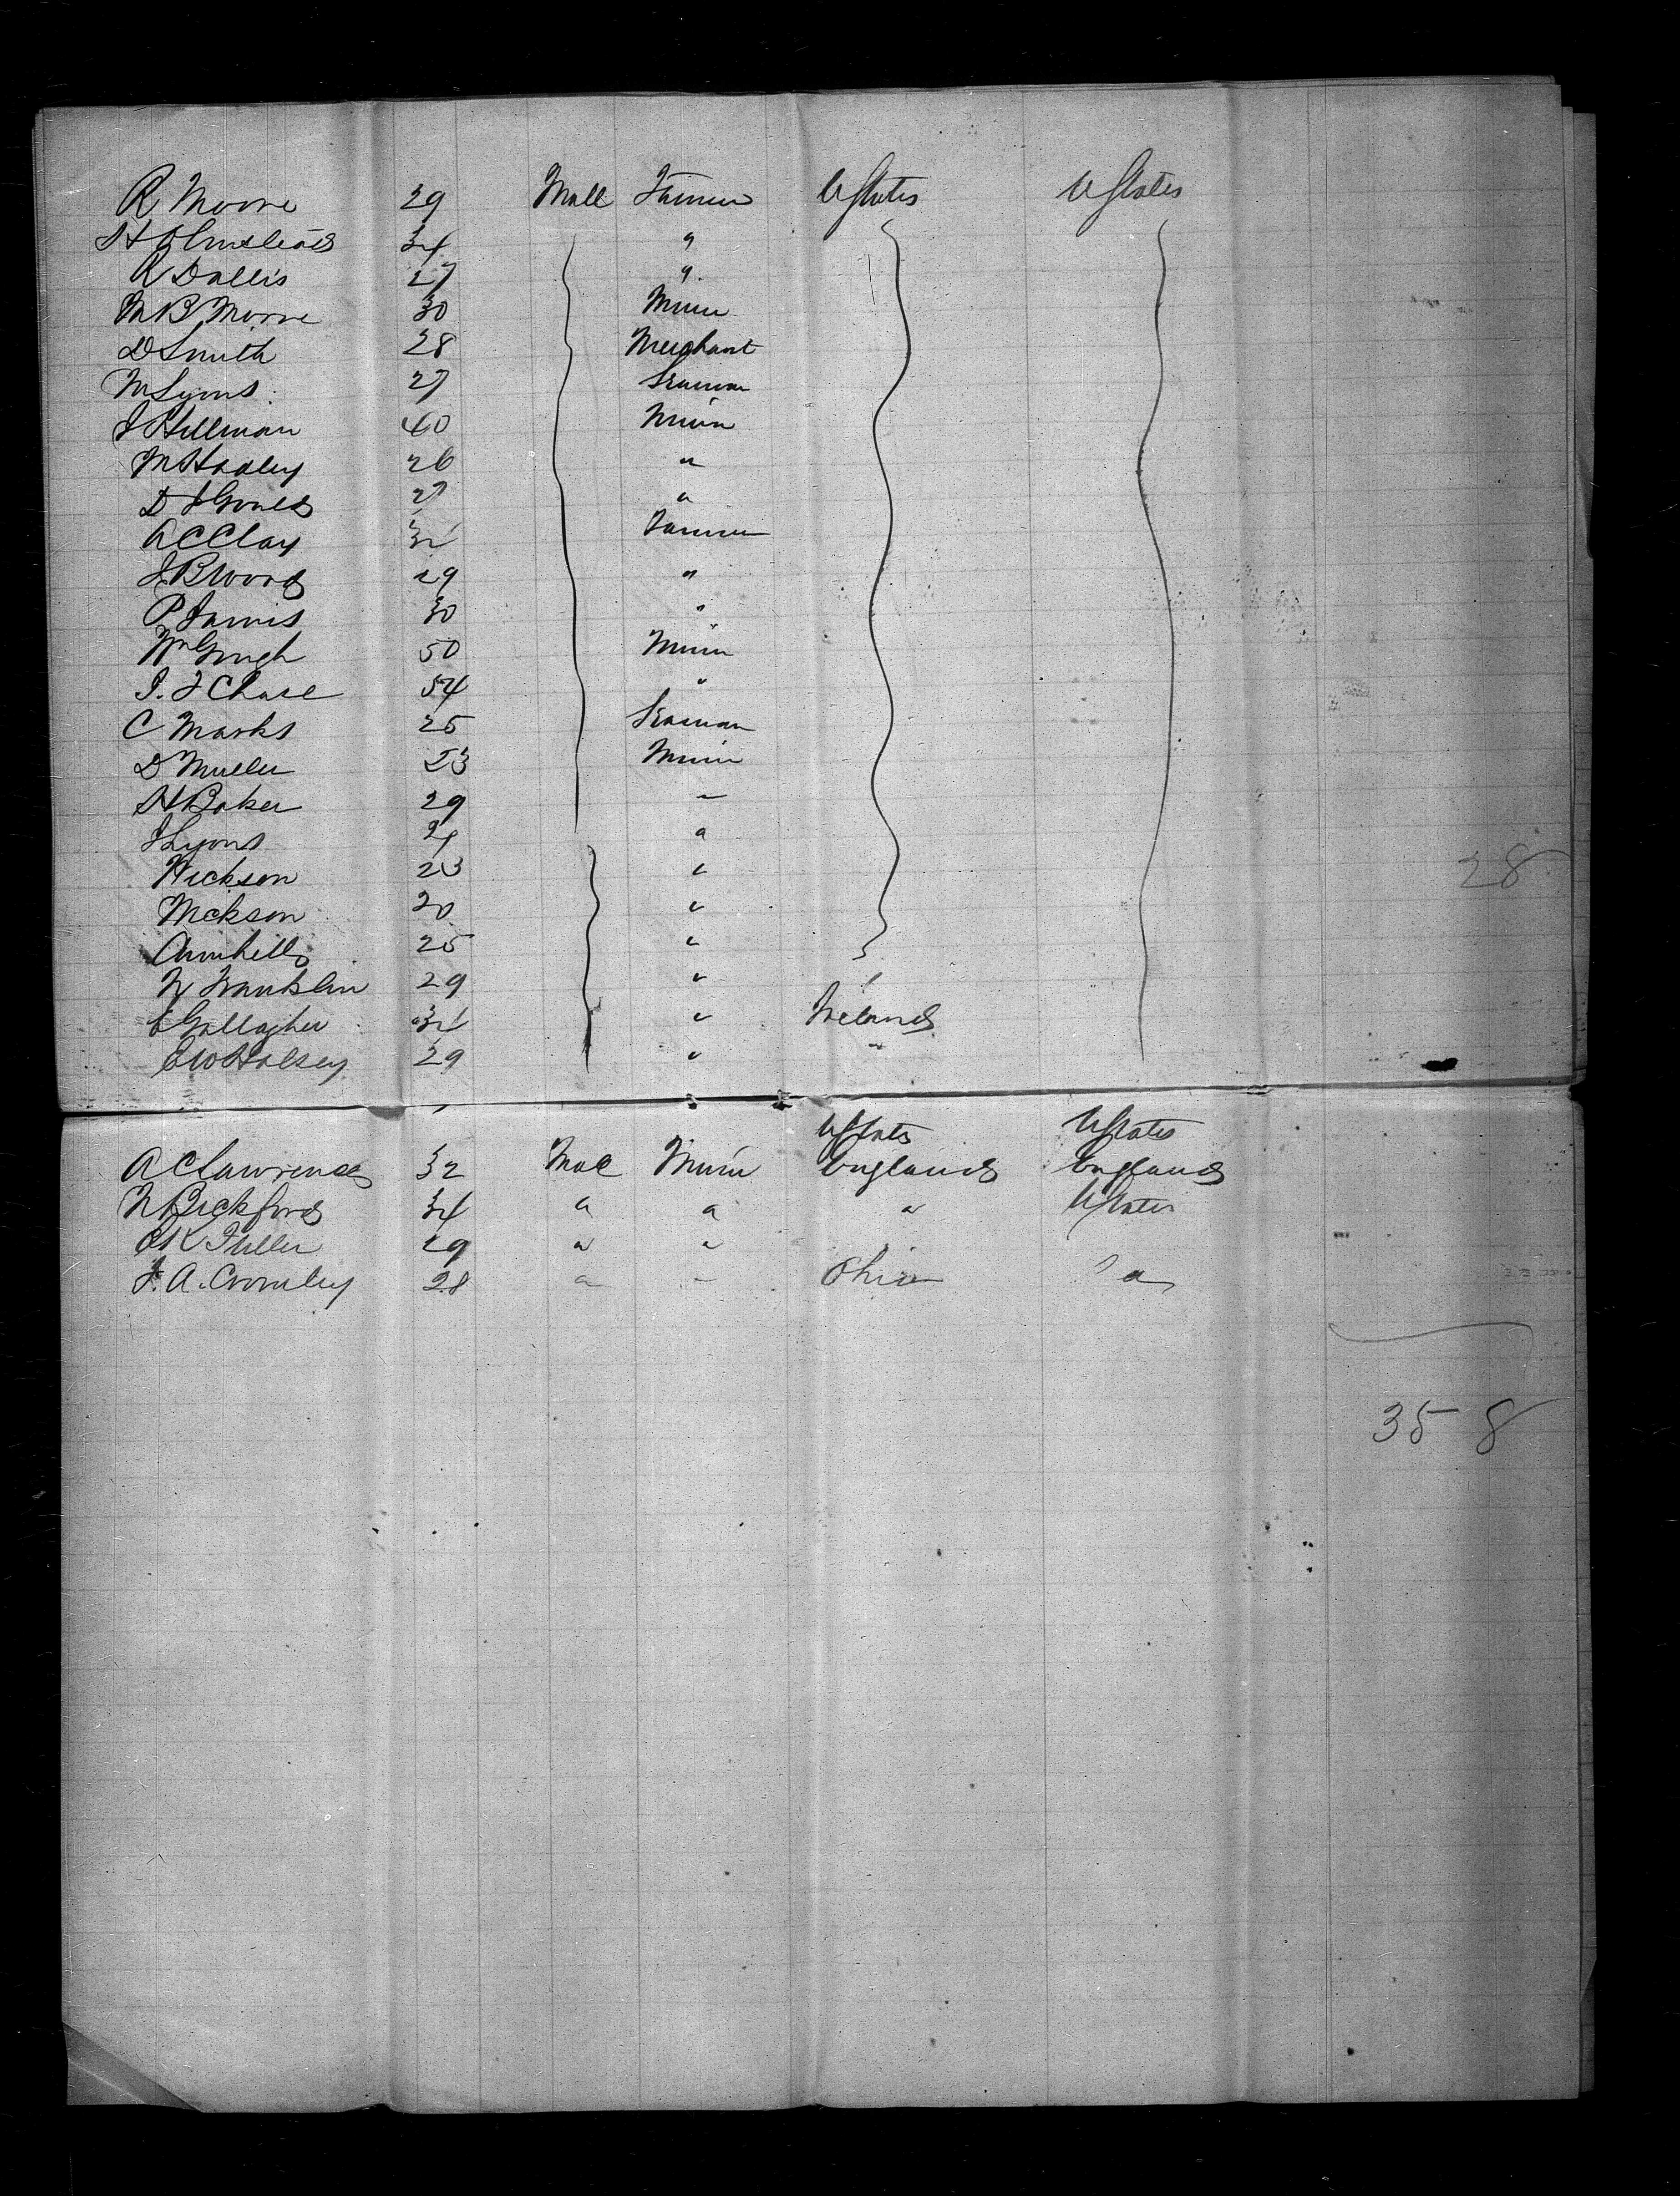 R Moore 29 Male Farmer U States U States
H Olmstead 34 "
R Dallis 27 "
M B Moore 30 Miner
D Smith 28 Merchant
M Lyons 27 Seaman
J Hillman 40 Miner
M Hadley 26 "
D J 27 "
A C Clay Farmer
J B Wood 29 "
P Jarvis 30 "
Wm Gough 50 Miner
S. J Chase 54 "
C Marks 25 Seaman
D Muller 23 Miner
H Baker 29 "
J Lyons "
Hickson 23 "
Nickson 20 "
25 "
N Franklin 29 "
C Gallagher " Ireland
C W Halsey 29 " "
28
U States U States
A C Lawrence 32 Male Miner England England
N Bickford 34 " " " U States
C K Fuller 29 " "
J. A. Cromley 28 " " Ohio "
35 8